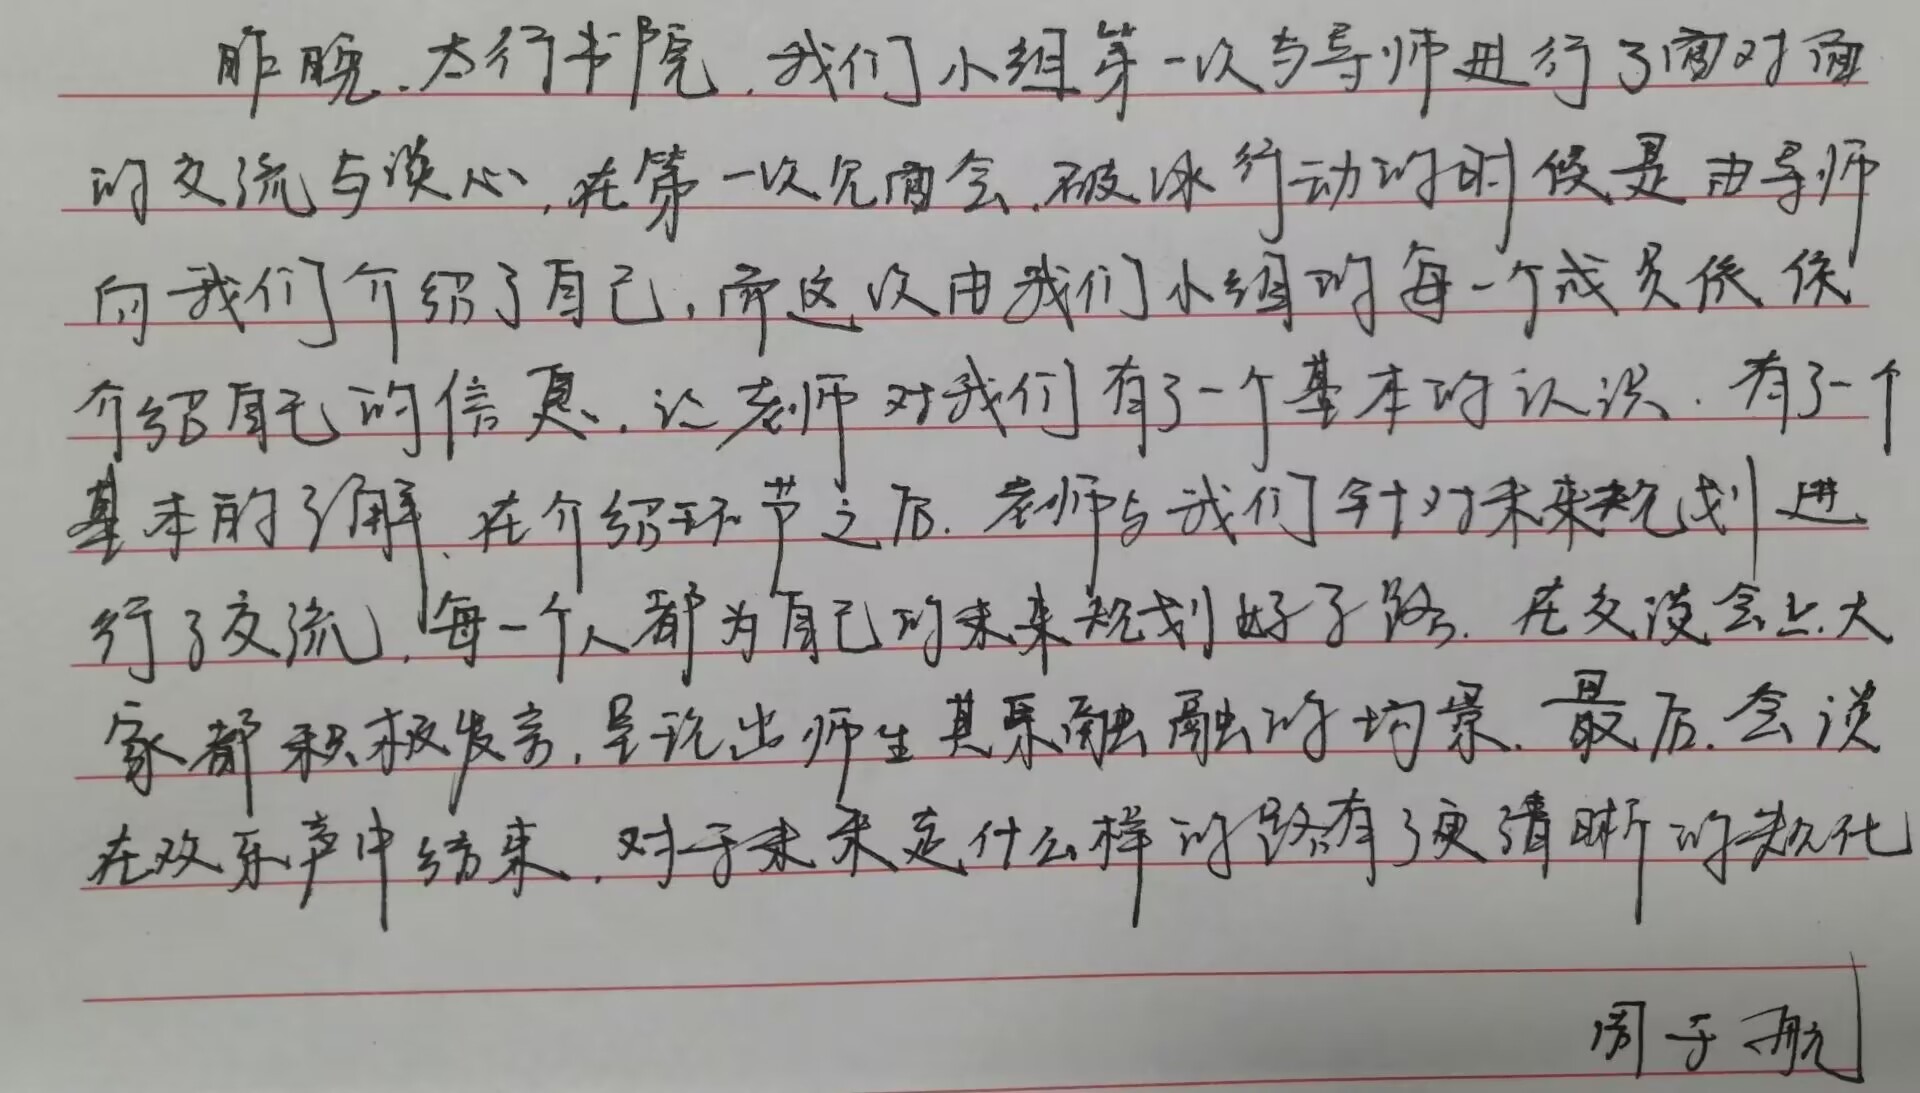 昨晚.太行书院.我们小组第一次与导师进行了面对面
的交流与谈心,在第一次见面会.破冰行动的时候是由导师
向我们介绍了自己,而这次由我们小组的每一个成员依依
介绍自己的信息.让老师对我们有了一个基本的认识.有了一个
基本的了解.在介绍环节之后.老师与我们针对未来规划进
行了交流,每一个人都为自己的未来规划好了路.在交谈会上大
家都积极发言,呈现出师生其乐融融的场景.最后.会谈
在欢乐声中结束.对于未来走什么样的路有了更清晰的规化
周于航